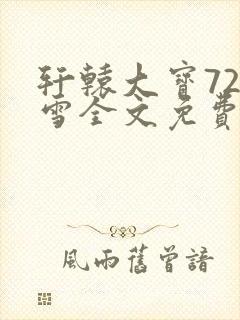 轩辕大寶72
雪全文免費
風雨舊曾諳